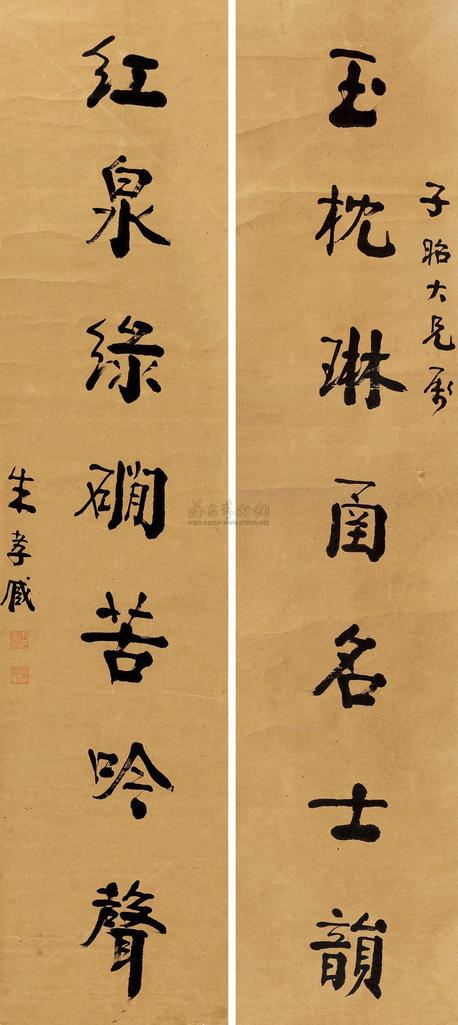 子昭大兄屬
玉枕琳函名士韻
紅泉綠磵苦吟聲
朱孝臧